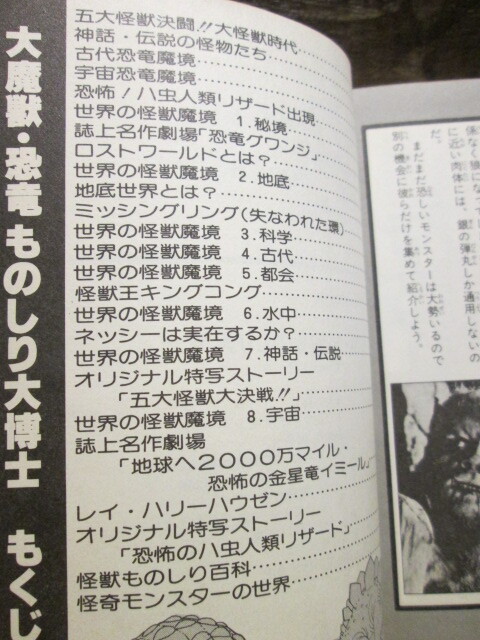 大魔獣・恐竜ものしり大博士 もくじ
五大怪獣決闘!!大怪獣時代
神話・伝説の怪物たち
古代恐竜魔境
宇宙恐竜魔境
恐怖!ハ虫人類リザード出現
世界の怪獣魔境 1.秘境
誌上名作劇場「恐竜グワンジ」
ロストワールドとは?
世界の怪獣魔境 2.地底
地底世界とは?
ミッシングリング(失なわれた環)
世界の怪獣魔境 3.科学
世界の怪獣魔境 4.古代
世界の怪獣魔境 5.都会
怪獣王キングコング
世界の怪獣魔境 6.水中
ネッシーは実在するか?
世界の怪獣魔境 7.神話・伝説
オリジナル特写ストーリー
「五大怪獣大決戦!!」
世界の怪獣魔境 8.宇宙
誌上名作劇場
「地球へ2000万マイル・
恐怖の金星竜イミール」
レイ・ハリーハウゼン
オリジナル特写ストーリー
「恐怖のハ虫人類リザード」
怪獣ものしり百科
怪奇モンスターの世界
に近い肉体には、銀の弾丸しか通用しないの
だ。
まだまだ恐しいモンスターは大勢いるので
別の機会に彼らだけを集めて紹介しよう。